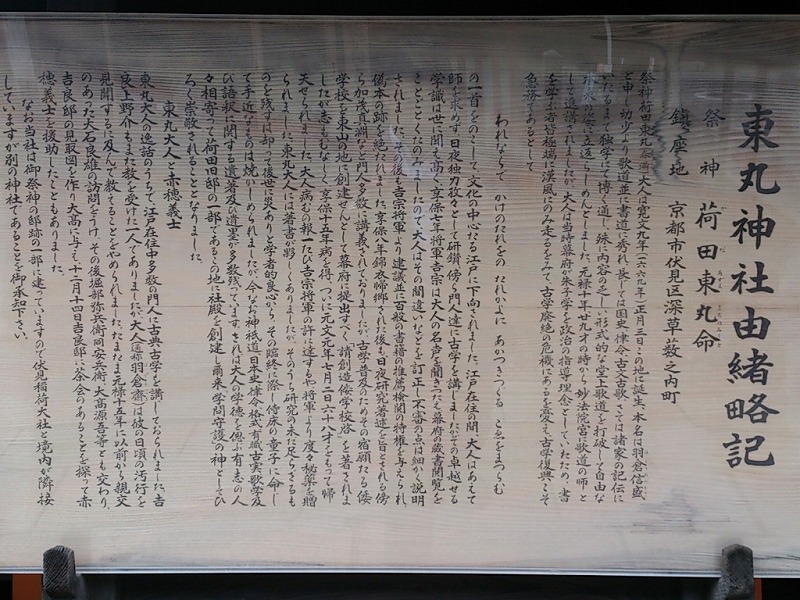 東丸神社由緒略記
祭神 荷田東丸命
鎮座地 京都市伏見区深草薮之内町
祭神荷田東丸大人は寛文九年(一六六九年)正月三日この地に誕生 本名は羽倉信盛
と申し幼少より歌道並に書道に秀れ 長じては国史 律令 古文古歌 さては諸家の記伝に
いたるまで独学にて博く通じ 殊に内容の乏しい形式的な堂上歌道を打破して自由な
に立返らしめんとしました。元禄十年二十九才の時から 妙法院宮に歌道の師と
して進講されましたが 大人は当時幕府が朱子学を政治の指導理念としていたため 書
を学ぶ者皆極端に漢風にのみ走るをみて 古学廃絶の危機にあるを憂へ 古学復興こそ
急務であるとして
の一首をのこして 文化の中心たる江戸に下向されました。江戸在住の間 大人はあえて
師を求めず 日夜独力孜々として研鑽 傍ら門人達に古学を講じましたが その卓越せる
学識は世に聞え高く 享保七年将軍吉宗は大人の名声を聞き 幕府の蔵書閲覧を
ことごとく したので 大人はその間違いなどを訂正し 不審の点は細かく説明
されました。その後も吉宗将軍より 建議並に百般の書籍の推薦検閲の特権を与えられ
偽本の跡を絶たれました。享保八年錦衣帰郷された後も 日夜研究著述を旨とされる傍
ら 加茂真淵など門人多数に講義されておりましたが 古学普及のためその宿願たる倭
学校を東山の地に創建せんとして 幕府に提出すべく「請創造倭学校啓」を著されま
したが 志もむなしく 享保十五年病を得 ついに元文元年七月二日六十八才をもって帰
天せられました。大人病むの報一たび吉宗将軍の許に達するや 将軍より二度々秘薬を贈
られました。東丸大人には著書が夥しくありましたが そのうち研究の未だ足らざるも
のを残すは却って後世の災ありと 学者的良心から その臨終に際し 侍床の童子に命じ
て手近なものは焼かしめられましたが 今なお神祇道 日本史 律令格式 有職古実 歌学及
び語釈に関する遺著及び遺墨が多数残っています。されば大人の学徳を偲ぶ有志の人
々相寄って 荷田旧邸の一部であるこの地に社殿を創建し 爾来学問守護の神としてひ
ろく崇敬されることとなりました。
東丸大人と赤穂義士
東丸大人の逸話のうちで 江戸在住中多数の門人に古典 古学を講じておられました。吉
良上野介もまた教を受けた一人でありましたが 大人(通称羽倉斎)は彼の日頃の汚行を
見聞するに及んで教えることをやめられました。たまたま元禄十五年に以前から親交
のあった大石良雄の訪問をうけ その後堀部弥兵衛 同安兵衛 大高源吾等とも交わり
吉良邸の見取図を作り大高に与え 十二月十四日吉良邸に茶会のあることを探って赤
穂義士に援助したこともありました。
なお当社は御祭神の邸跡の一部に建っていますので 伏見稲荷大社と境内が隣接
していますが 別の神社であることを御承知下さい。